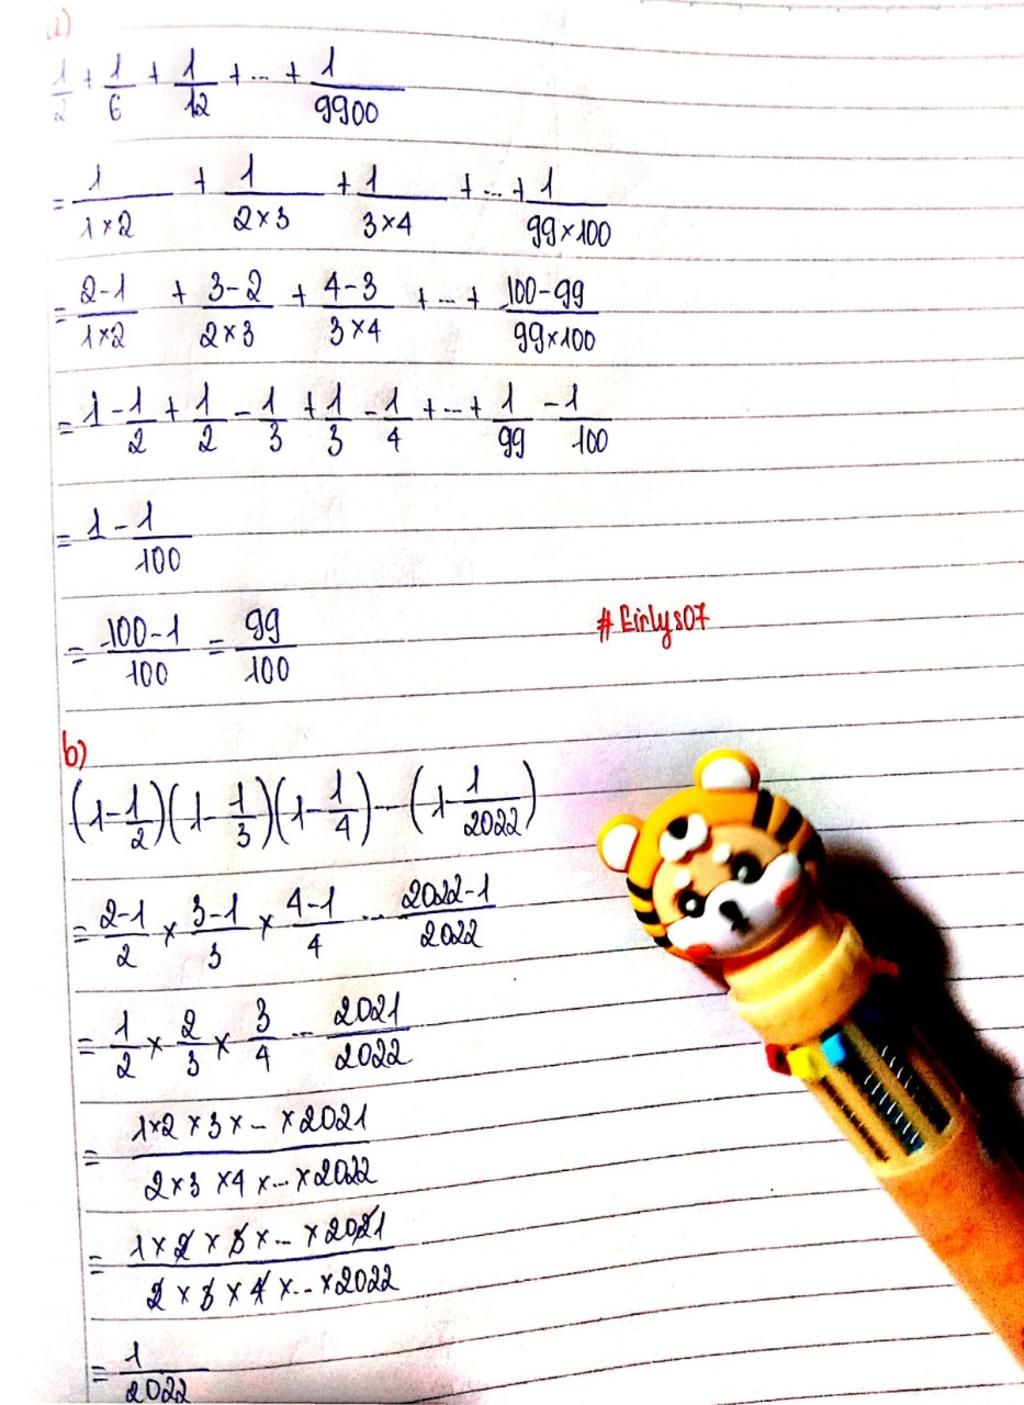 a)
1/2 + 1/6 + 1/12 + ... + 1/9900
= 1/(1×2) + 1/(2×3) + 1/(3×4) + ... + 1/(99×100)
= (2-1)/(1×2) + (3-2)/(2×3) + (4-3)/(3×4) + ... + (100-99)/(99×100)
= 1 - 1/2 + 1/2 - 1/3 + 1/3 - 1/4 + ... + 1/99 - 1/100
= 1 - 1/100
= (100-1)/100 = 99/100
#Eirlys07
b)
(1-1/2)(1-1/3)(1-1/4)...(1-1/2022)
= (2-1)/2 × (3-1)/3 × (4-1)/4 ... (2022-1)/2022
= 1/2 × 2/3 × 3/4 ... 2021/2022
= (1×2×3×...×2021)/(2×3×4×...×2022)
= (1×2×3×...×2021)/(2×3×4×...×2022)
= 1/2022